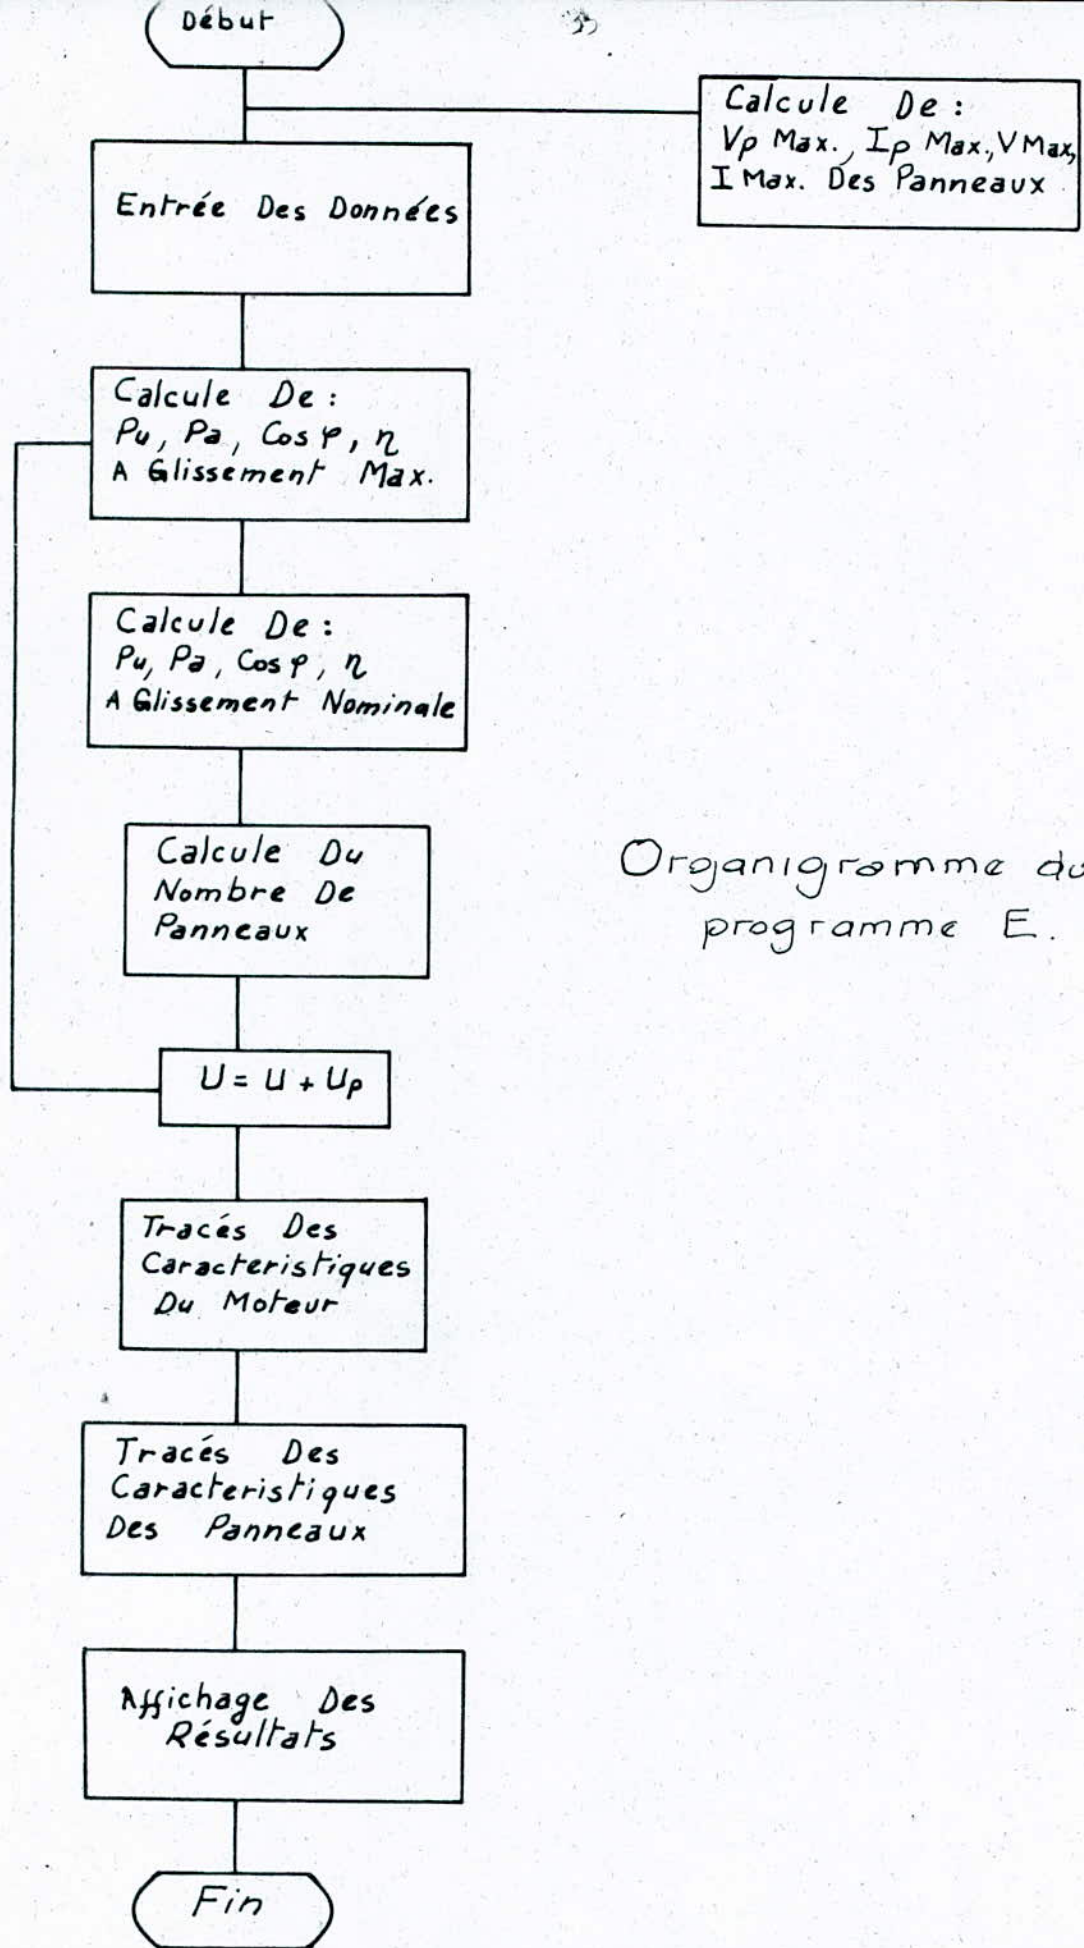 Début
Calcule De:
Vp Max., Ip Max., V Max,
I Max. Des Panneaux
Entrée Des Données
Calcule De:
Pu, Pa, Cos φ, η
A Glissement Max.
Calcule De:
Pu, Pa, Cos φ, η
A Glissement Nominale
Calcule Du
Nombre De
Panneaux
Organigramme du
programme E.
U = U + Up
Tracés Des
Caracteristiques
Du Moteur
Tracés Des
Caracteristiques
Des Panneaux
Affichage Des
Résultats
Fin